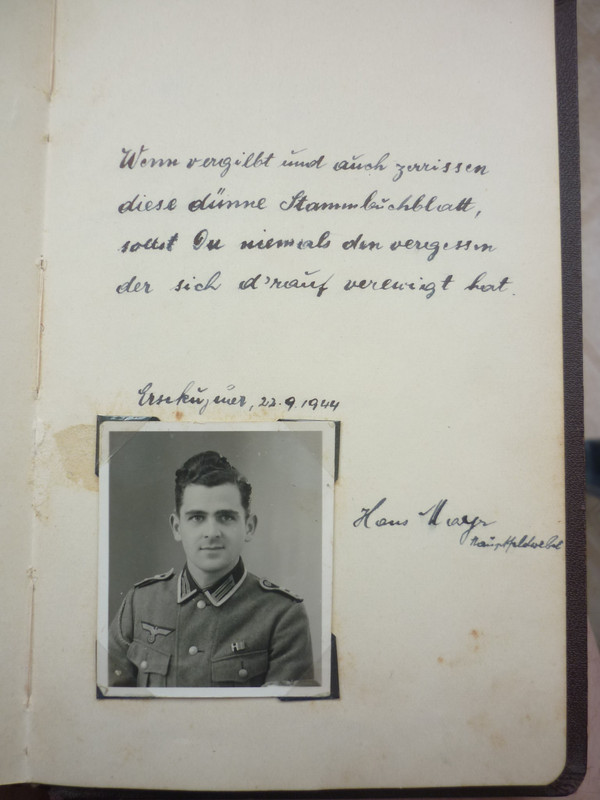 Wenn vergilbt und auch zerrissen
diese dünne Stammbuchblatt,
sollst Du niemals den vergessen
der sich d'rauf verewigt hat.
Ersekújvár, 22.9.1944
Hans Mayr
Hauptfeldwebel